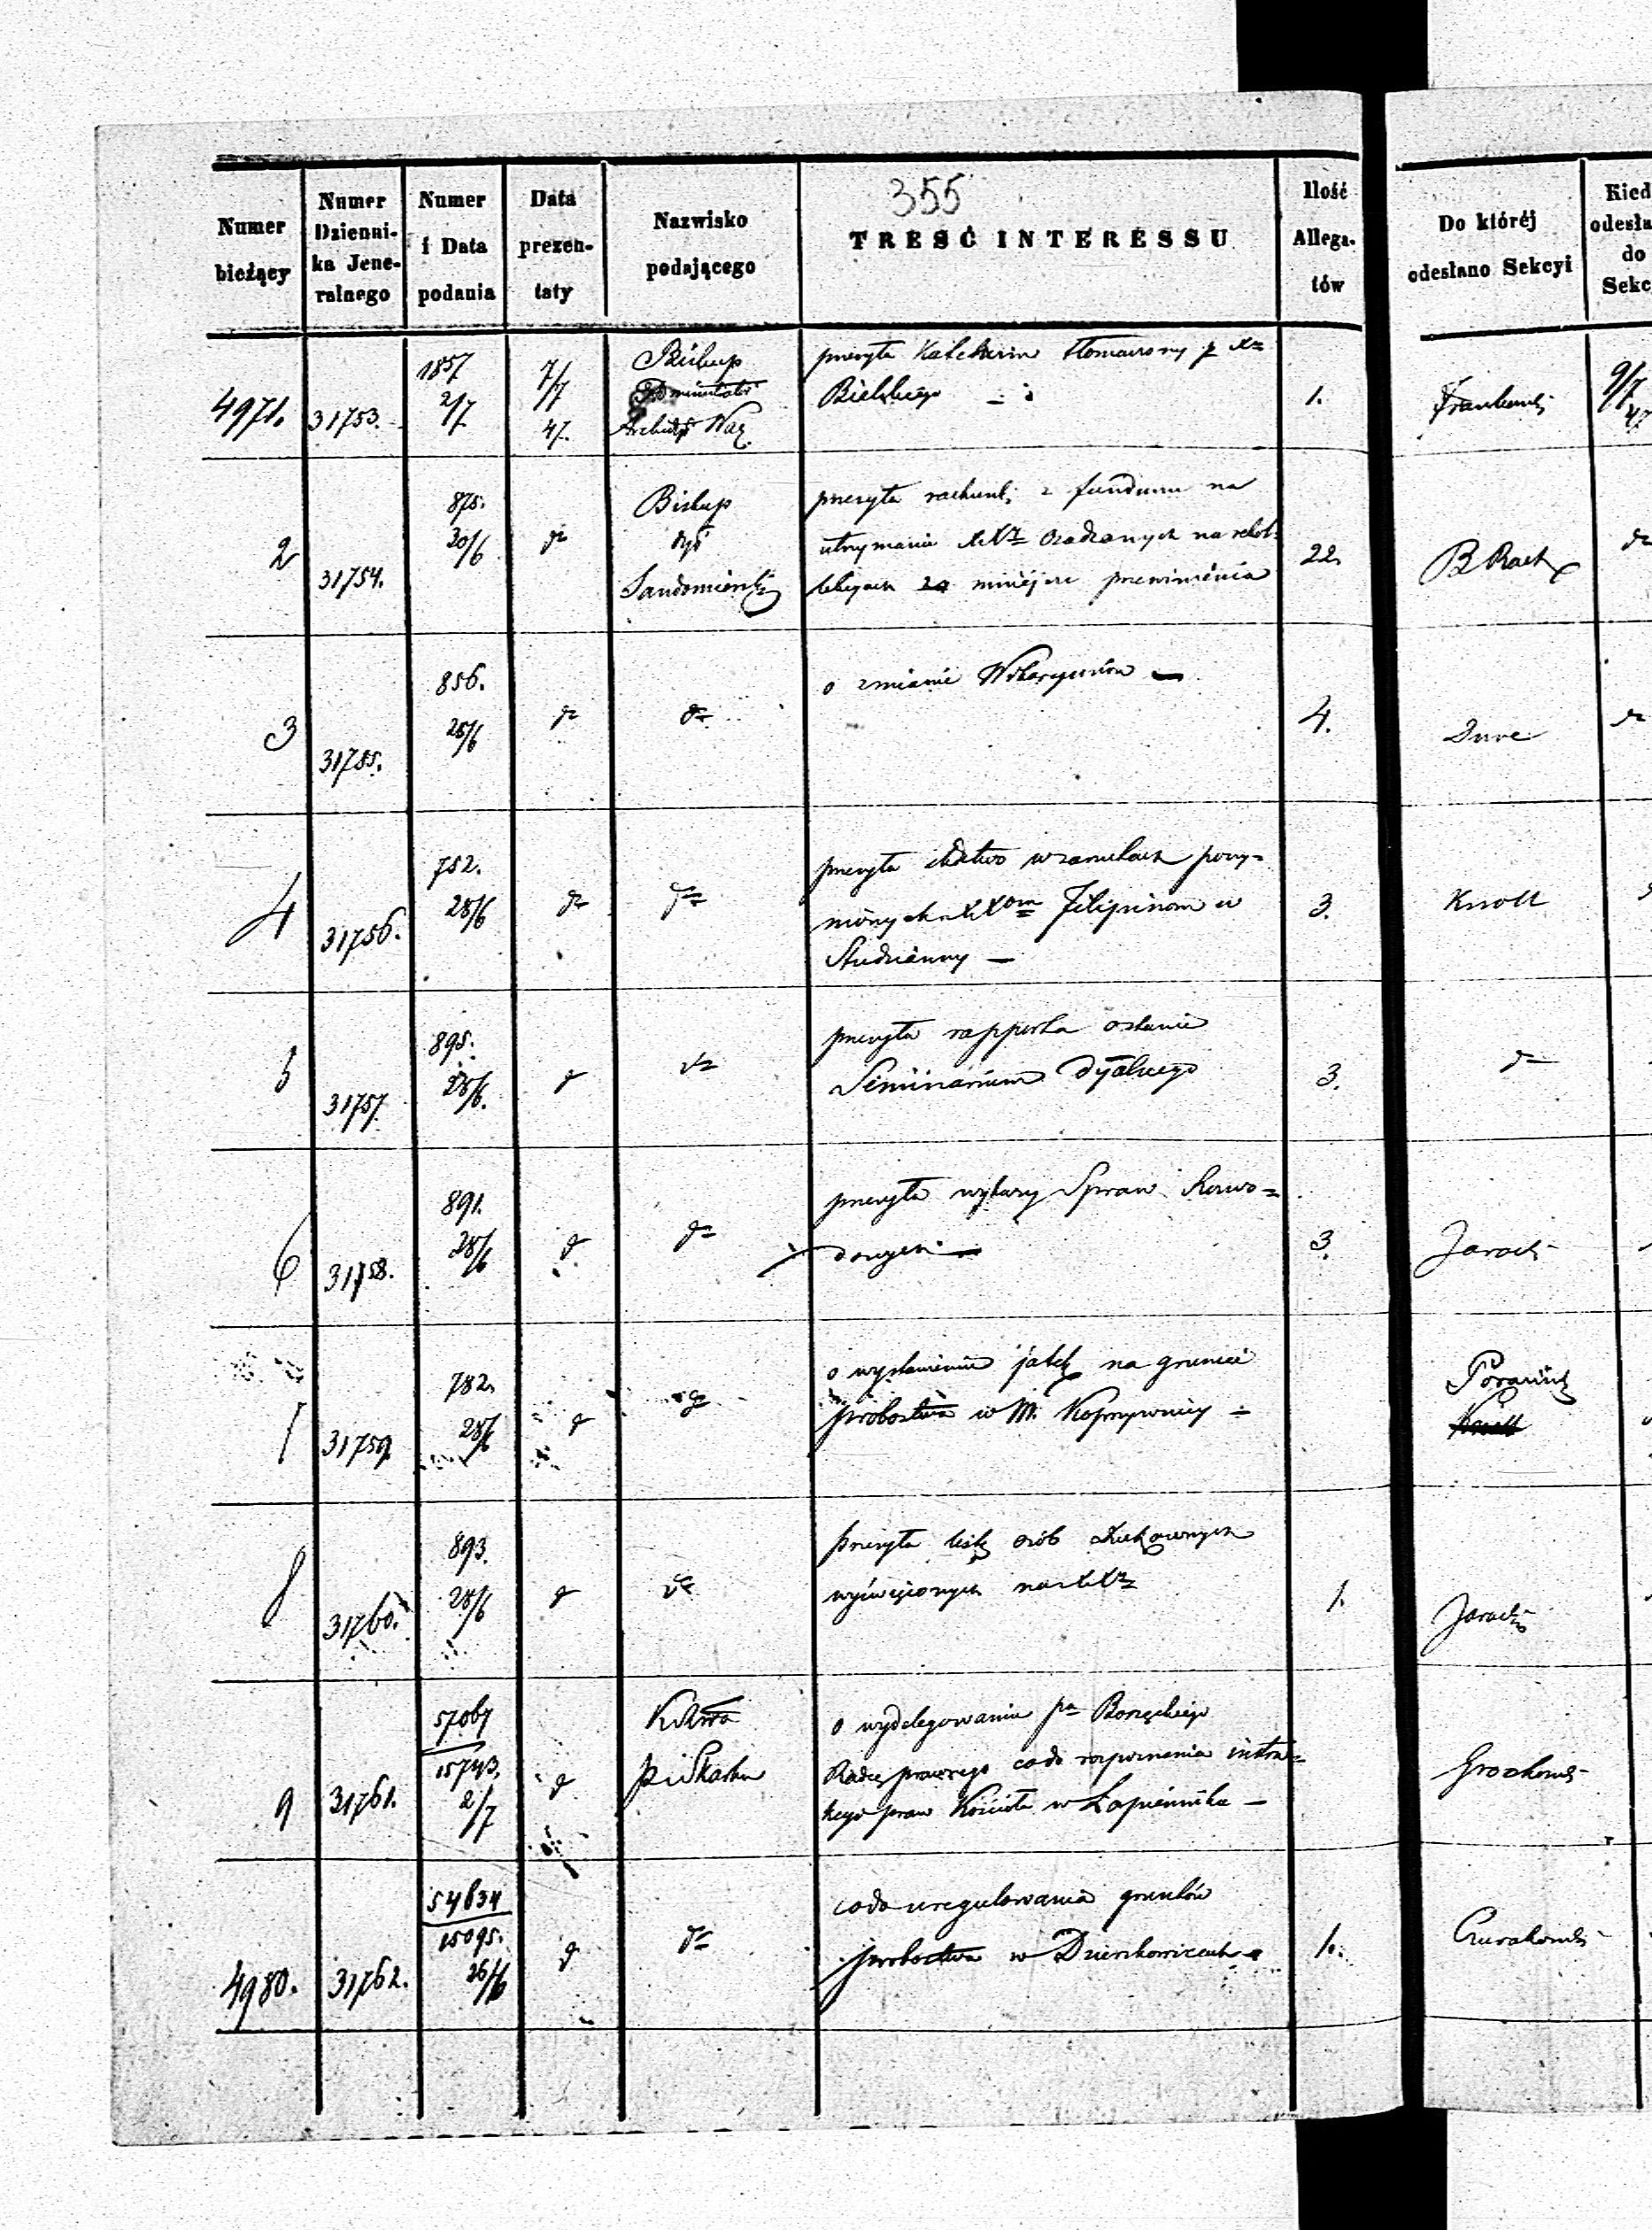 355
Numer bieżący
Numer Dzienni-ka Jene-ralnego
Numer i Data podania
Data prezen-taty
Nazwisko podającego
TREŚĆ INTERESSU
Ilość Allega-tów
Do któréj odesłano Sekcyi
Kied odesła do Sekc
4971. 31753. 1857 2/7 7/7 47. Biskup Administrator Archidy War.
przesyła Katechizm tłomaczony p Xa
Bielskiego
1.
9/7 47
2 31754. 875. 30/6 do Biskup dyi Sandomierski
przesyła rachunki z funduszu na
utrzymanie XXzy osadzonych na rekol-
lekcyach
22.
B Rach
do
3 31755. 856. 25/6 do do
o zmianie Wikaryuszów —
4.
do
4 31756. 752. 28/6 do do
przesyła
XXom Filipinom w
Studzianny —
3.
Knoll
5 31757. 895. 28/6. do do
przesyła rapporta o stanie
Seminarium Dyalnego
3.
do
6 31758. 891. 28/6 do do
przesyła wykazy Spraw Rozwo=
dowych —
3.
Jarocki
7 31759. 782. 28/6 do do
o wystawieniu jatek na gruncie
probostwa w M. Koprzywnicy
8 31760. 893. 28/6 do do
przesyła listę osób Duchownych
wyświęconych na XXzy
1.
Jarocki
9 31761. 57067 15743. 2/7 do KRSta PiSkarbu
o wydelegowanie pa Borzęckiego
Radcę prawnego co do rozpoznania
praw Kościoła w Łopienniku —
4980. 31762. 54634 15095. 26/6 do do
co do uregulowania gruntów
probostwa w Dzierzkowicach
1.